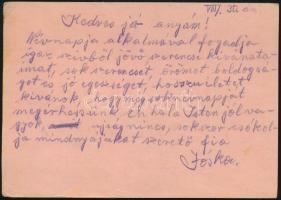 VIII. 31. én
Kedves jó anyám!
Névnapja alkalmával fogadja
igaz szívből jövő szerencse kívánata-
imat, sok szerencsét, örömet boldogsá-
got és jó egészséget, hosszú életet
kívánok, hogy még sok névnapját
megérhessünk. Én hála Isten jól va-
gyok, ujság nincs, sokszor csókol-
ja mindnyájukat szerető fia
Jóska.